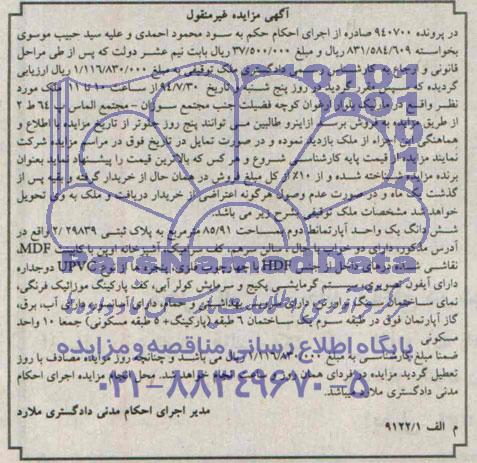 آگهی مزایده غیرمنقول
در پرونده ۹۴۰۷۰۰ صادره از اجرای احکام حکم به سود محمود احمدی و علیه سید حبیب موسوی
بخواسته ۸۳۱/۵۸۴/۶۰۹ ریال و مبلغ ۳۷/۵۰۰/۰۰۰ ریال بابت نیم عشر دولت که پس از طی مراحل
قانونی و ارجاع به کارشناس رسمی دادگستری ملک توقیفی به مبلغ ۱/۱۱۶/۸۳۰/۰۰۰ ریال ارزیابی
گردیده که سپس مقرر گردید در روز پنج شنبه از تاریخ ۹۴/۷/۳۰ از ساعت ۱۰ تا ۱۱ ملک مورد
نظر واقع در مارلیک بلوار ارغوان کوچه فضیلت جنب مجتمع سوزان - مجتمع الماس ب ۶۴ ط ۲
از طریق مزایده به فروش برسد ازاینرو طالبین می توانند پنج روز جلوتر از تاریخ مزایده با اطلاع و
هماهنگی این اجراء از ملک بازدید نموده و در صورت تمایل در تاریخ فوق در مراسم مزایده شرکت
نمایند مزایده از قیمت پایه کارشناسی شروع و هر کس که بالاترین قیمت را پیشنهاد نماید بعنوان
برنده مزایده شناخته شده و از ۱۰٪ از کل مبلغ فروش در همان حال از خریدار گرفته و بقیه پس از
گذشت یک ماه و در صورت عدم وصول هرگونه اعتراضی از خریدار دریافت و ملک به وی تحویل
خواهد شد مشخصات ملک توقیفی بشرح زیر می باشد.
شش دانگ یک واحد آپارتمان ط دوم مساحت ۸۵/۹۱ مترمربع به پلاک ثبتی ۲/۲۹۸۳۹ واقع در
آدرس مذکور، دارای دو خواب با حال و سالن سرهم، کف سرامیک، آشپزخانه اوپن با کابینت MDF،
نقاشی شده درهای داخل از جنس HDF با چهارچوب فلزی، پنجره ها از نوع UPVC دوجداره
دارای آیفون تصویری، سیستم گرمایشی پکیج و سرمایش کولر آبی، کف پارکینگ موزائیک فرنگی،
نمای ساختمان سنگ تراورتن، دارای سرویس بهداشتی و حمام، دارای آسانسور، دارای آب، برق،
گاز آپارتمان فوق در طبقه سوم یک ساختمان ۶ طبقه (پارکینگ + ۵ طبقه مسکونی) جمعا ۱۰ واحد
مسکونی
ضمنا مبلغ کارشناسی به مبلغ ۱/۱۱۶/۸۳۰/۰۰۰ ریال می باشد و چنانچه روز مزایده مصادف با روز
تعطیل گردید مزایده در فردای همان روز و ساعت انجام خواهد شد. محل انجام مزایده اجرای احکام
مدنی دادگستری ملارد میباشد.
مدیر اجرای احکام مدنی دادگستری ملارد
م الف ۹۱۲۲/۱
ParsNamadData
پایگاه اطلاع رسانی مناقصه و مزایده
۰۲۱-۸۸۳۴۹۶۷۰-۵